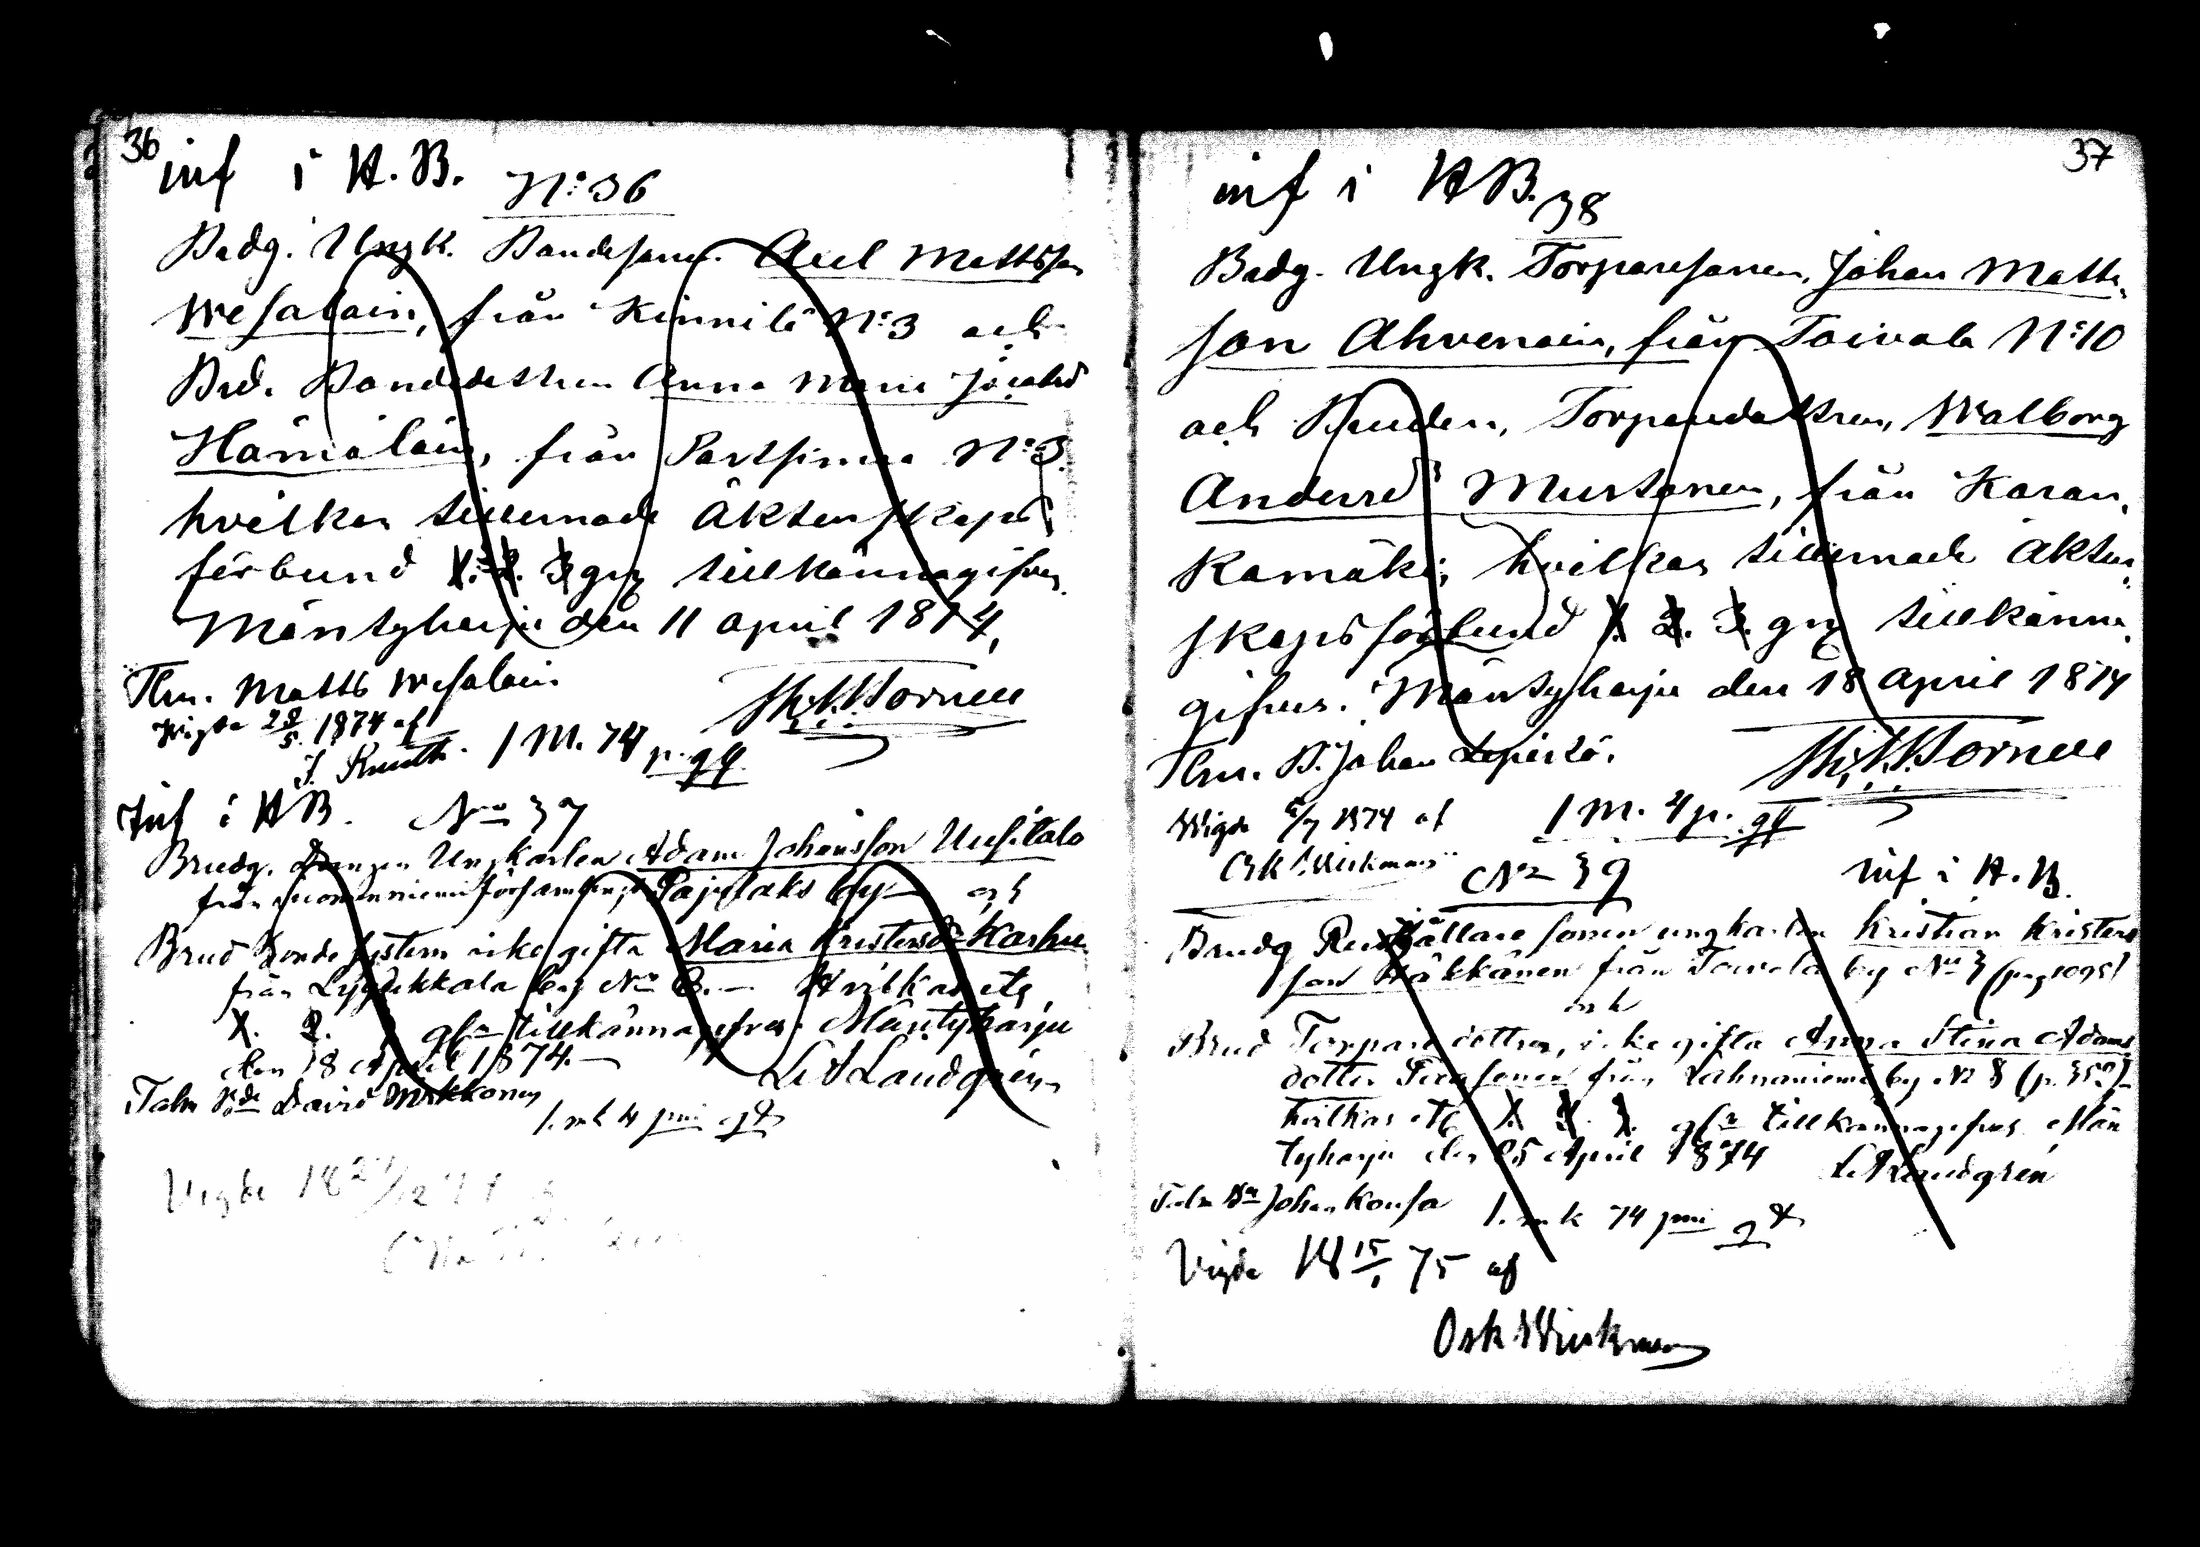 36
inf i H.B. N:o 36
Brdg. Ungk. Bondesonen Axel Mattsson
Wesalain, från Kinnilä N:o 3 och
Brd. Bondedottren Anna Maria Jacobsd
Hämäläin, från Partsimaa N:o 3.
hvilkas tillernade Äktenskaps
förbund 1. 2. 3 gng tillkännagifves.
Mäntyharju den 11 april 1874.
Tlm. Matts Wesalain
Wigde 1874 af
1 M. 74 p. gq
Inf i HB. No 37
Brudg. Drengen Ungkarlen Adam Johansson Uusitalo
från Suomenniemi församlings Pajulaks by och
Brud Bondesystern icke gifta Maria Kristersdr Karhu
från Lyytikkälä by No 8. Hvilkas etc
1. 2. 3 tillkännagifves. Mäntyharju
den 18 April 1874.
L A Landgrén
Talm David Mikkonen
1. mk 4 pni qt
Vigde
37
inf i HB. 38
Brdg. Ungk. Torparesonen, Johan Matts
son Ahvenain, från Toivola N:o 10
och Bruden, Torparedottren, Walborg
Andersd Mustonen, från Karan
kamäki, hvilkas tillernade äkten
skapsförbund 1. 2. 3. gng tillkänna
gifves. Mäntyharju den 18 april 1874
Tlm. B. Johan Lepistö.
Wigde 5/7 1874 af 1 M. 4 p. gq
Osk. Wirkman
No 39 inf i H.B.
Brudg Reihjällare sonen ungkarlen Kristian Kristers
son Häkkänen från Toivola by No 3 (pag 1095)
och
Brud Torpare dottren, icke gifta Anna Stina Adams
dotter från Lahnaniemi by No 8
hvilkas etc 1. 2. 3. tillkännagifves Män
tyharju den 25 April 1874 L A Landgrén
Talm Johan Konsa 1. mk 74 pni qt
Vigde 18 15/1 75 af
Osk Wirkman